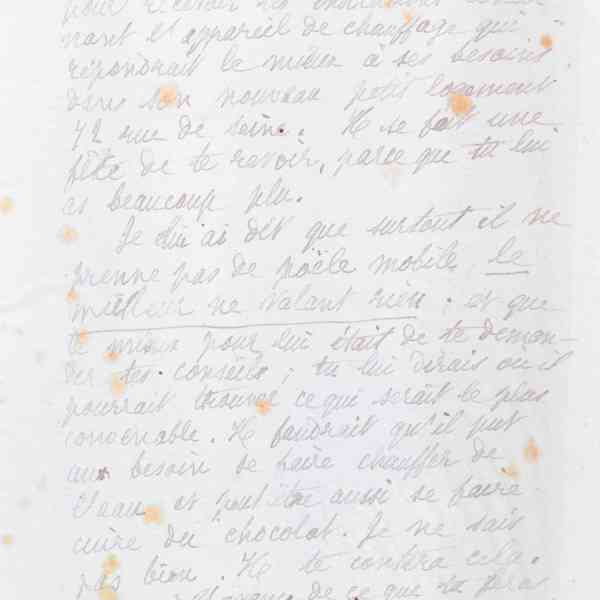 pour
nant et appareil de chauffage qui
répondrait le mieux à ses besoins
dans son nouveau petit logement
42 rue de Seine. Il se fait une
fête de te revoir, parce que tu lui
as beaucoup plu.
Je lui ai dit que surtout il ne
prenne pas de poële mobile, le
meilleur ne valant rien ; et que
le mieux pour lui était de te deman-
der tes conseils ; tu lui dirais où il
pourrait trouver ce qui serait le plus
convenable. Il faudrait qu'il put
au besoin se faire chauffer de
l'eau et peut être aussi se faire
cuire du chocolat. Je ne sais
pas bien. Il te contera cela.
de ce que tu feras